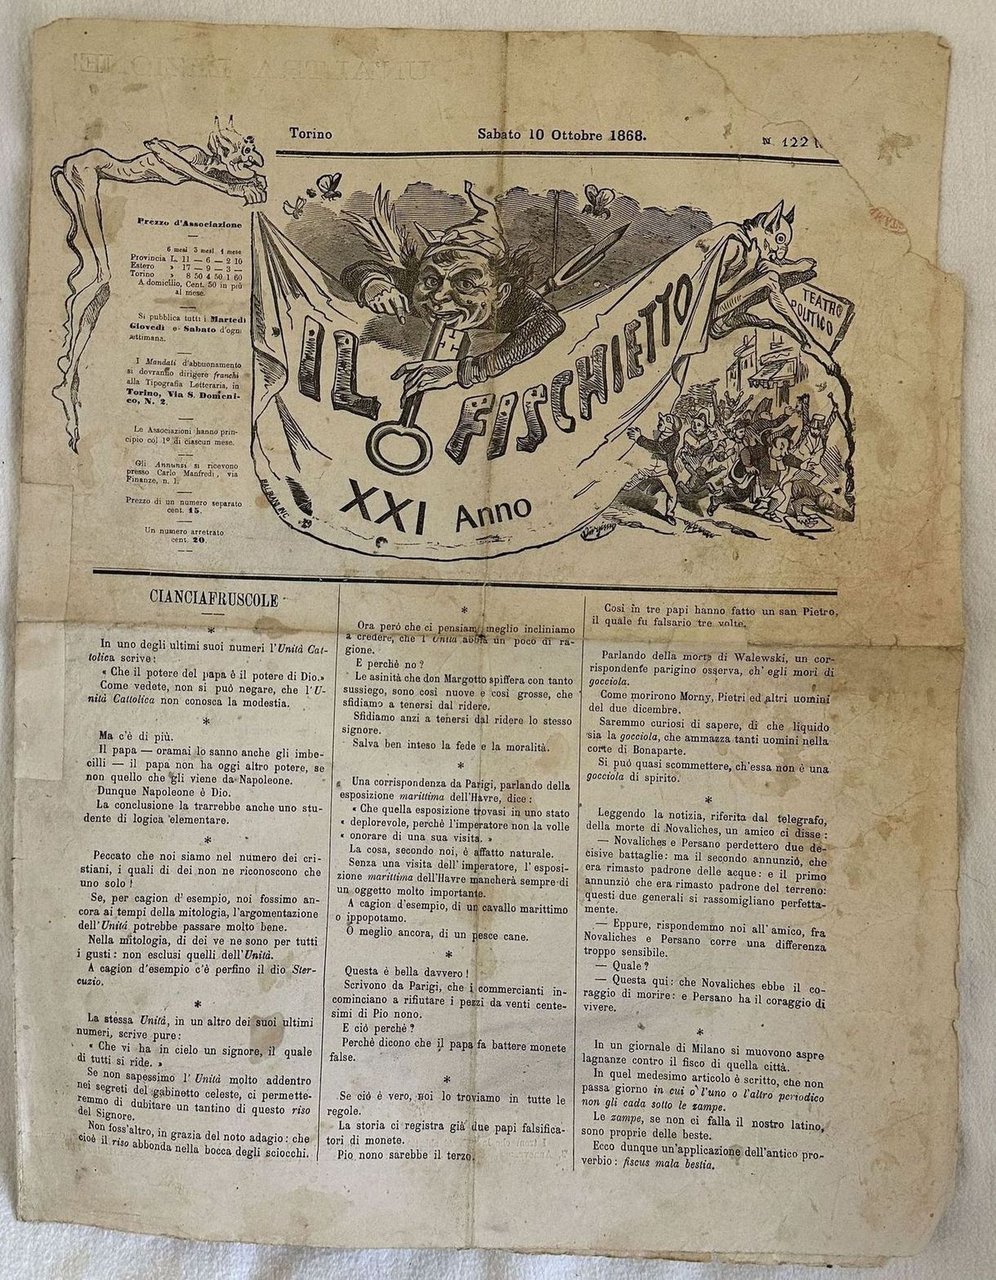 Torino
Sabato 10 Ottobre 1868.
N. 122
Prezzo d'Associazione
6 mesi 3 mesi 1 mese
Provincia L. 11 — 6 — 2 10
Estero » 17 — 9 — 3 —
Torino » 8 50 4 50 1 60
A domicilio, Cent. 50 in più
al mese.
Si pubblica tutti i Martedì
Giovedì e Sabato d'ogni
settimana.
I Mandati d'abbuonamento
si dovranno dirigere franchi
alla Tipografia Letteraria, in
Torino, Via S. Domeni-
co, N. 2.
Le Associazioni hanno prin-
cipio col 1º di ciascun mese.
Gli Annunzi si ricevono
presso Carlo Manfredi, via
Finanze, n. 1.
Prezzo di un numero separato
cent. 15.
Un numero arretrato
cent. 20.
IL FISCHIETTO
XXI Anno
TEATRO
POLITICO
CIANCIAFRUSCOLE
*
In uno degli ultimi suoi numeri l'Unità Cat-
tolica scrive:
« Che il potere del papa è il potere di Dio.»
Come vedete, non si può negare, che l'U-
nità Cattolica non conosca la modestia.
*
Ma c'è di più.
Il papa — oramai lo sanno anche gli imbe-
cilli — il papa non ha oggi altro potere, se
non quello che gli viene da Napoleone.
Dunque Napoleone è Dio.
La conclusione la trarrebbe anche uno stu-
dente di logica elementare.
*
Peccato che noi siamo nel numero dei cri-
stiani, i quali di dei non ne riconoscono che
uno solo!
Se, per cagion d'esempio, noi fossimo an-
cora ai tempi della mitologia, l'argomentazione
dell'Unità potrebbe passare molto bene.
Nella mitologia, di dei ve ne sono per tutti
i gusti: non esclusi quelli dell'Unità.
A cagion d'esempio c'è perfino il dio Ster-
cuzio.
*
La stessa Unità, in un altro dei suoi ultimi
numeri, scrive pure:
« Che vi ha in cielo un signore, il quale
di tutti si ride. »
Se non sapessimo l'Unità molto addentro
nei segreti del gabinetto celeste, ci permette-
remmo di dubitare un tantino di questo riso
del Signore.
Non foss'altro, in grazia del noto adagio: che
cioè il riso abbonda nella bocca degli sciocchi.
*
Ora però che ci pensiam, meglio incliniamo
a credere, che l'Unità abbia un poco di ra-
gione.
E perchè no?
Le asinità che don Margotto spiffera con tanto
sussiego, sono così nuove e così grosse, che
sfidiamo a tenersi dal ridere.
Sfidiamo anzi a tenersi dal ridere lo stesso
signore.
Salva ben inteso la fede e la moralità.
*
Una corrispondenza da Parigi, parlando della
esposizione marittima dell'Havre, dice:
« Che quella esposizione trovasi in uno stato
« deplorevole, perchè l'imperatore non la volle
« onorare di una sua visita. »
La cosa, secondo noi, è affatto naturale.
Senza una visita dell'imperatore, l'esposi-
zione marittima dell'Havre mancherà sempre di
un oggetto molto importante.
A cagion d'esempio, di un cavallo marittimo
o ippopotamo.
O meglio ancora, di un pesce cane.
*
Questa è bella davvero!
Scrivono da Parigi, che i commercianti in-
cominciano a rifiutare i pezzi da venti cente-
simi di Pio nono.
E ciò perchè?
Perchè dicono che il papa fa battere monete
false.
*
Se ciò è vero, noi lo troviamo in tutte le
regole.
La storia ci registra già due papi falsifica-
tori di monete.
Pio nono sarebbe il terzo.
Così in tre papi hanno fatto un san Pietro,
il quale fu falsario tre volte.
Parlando della morte di Walewski, un cor-
rispondente parigino osserva, ch'egli morì di
gocciola.
Come morirono Morny, Pietri ed altri uomini
del due dicembre.
Saremmo curiosi di sapere, di che liquido
sia la gocciola, che ammazza tanti uomini nella
corte di Bonaparte.
Si può quasi scommettere, ch'essa non è una
gocciola di spirito.
*
Leggendo la notizia, riferita dal telegrafo,
della morte di Novaliches, un amico ci disse:
— Novaliches e Persano perdettero due de-
cisive battaglie: ma il secondo annunziò, che
era rimasto padrone delle acque: e il primo
annunziò che era rimasto padrone del terreno:
questi due generali si rassomigliano perfetta-
mente.
— Eppure, rispondemmo noi all'amico, fra
Novaliches e Persano corre una differenza
troppo sensibile.
— Quale?
— Questa qui: che Novaliches ebbe il co-
raggio di morire: e Persano ha il coraggio di
vivere.
*
In un giornale di Milano si muovono aspre
lagnanze contro il fisco di quella città.
In quel medesimo articolo è scritto, che non
passa giorno in cui o l'uno o l'altro periodico
non gli cada sotto le zampe.
Le zampe, se non ci falla il nostro latino,
sono proprie delle bestie.
Ecco dunque un'applicazione dell'antico pro-
verbio: fiscus mala bestia.